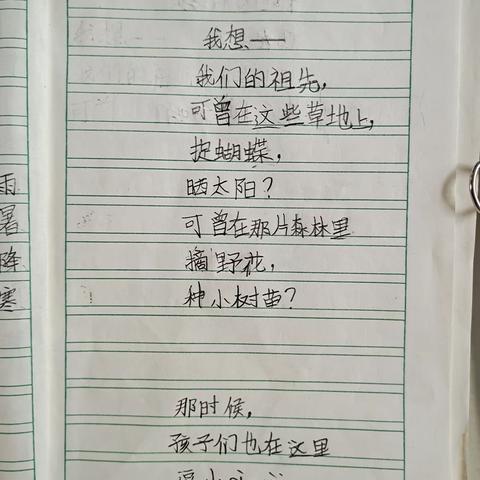 我想——
我们的祖先,
可曾在这些草地上,
捉蝴蝶,
晒太阳?
可曾在那片森林里
摘野花,
种小树苗?
那时候,
孩子们也在这里
雨
暑
降
寒